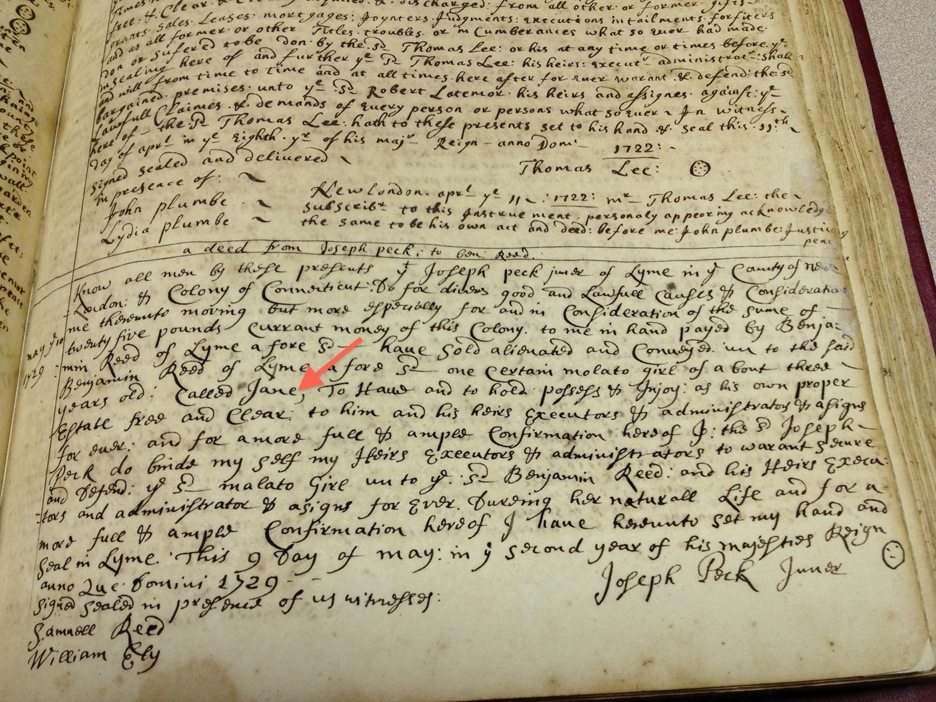 free & Clear & discharged: from all other or former gifts
grants: Sales: Leases: mortgages: Joynters: Judgments: Executions intailments: forfiters
and as all former or other Titles: troubles: or in Cumberances what so ever had made
don or sufered to be don: by the sd Thomas Lee: or his at any time or times before ye
insealing here of and further ye sd Thomas Lee: his heirs: execut administrar: shall
and will from time to time and at all times here after for ever warant & defend: the sd
bargained: premises: unto ye sd Robert Latemor: his heirs and assignes: against: ye
Lawfull Claimes & demands of every person or persons what so ever ~ In witness ~
here of ~ the sd Thomas Lee: hath to these presents set to his hand & seal this: 11th
day of aprl in ye Eighth: yr of his majr Reign - anno Dom: 1722:
Signed sealed and delivered ~ Thomas Lee:
in presence of: ~
John plumbe: ~ New London: aprl ye 11 : 1722: mr Thomas Lee: the
Lydia plumbe ~ subscribr to this Instruement, personaly appering acknowledg
the same to be his own act and deed: before me: John plumbe: Justice
peac
a deed from Joseph peck: to ben Reed:
Know all men by these presents y Joseph peck juner of Lyme in y County of new
London: & Colony of Connecticut Do for divers good and Lawfull Causes & Consideratio
me thereunto moving but more especially for and in Consideration of the sume of
twenty five pounds Currant money of this Colony: to me in hand payed by Benja-
min Reed of Lyme afore sd have sold alienated and Conveyed un to the said
may
1729
Benjamin Reed of Lyme afore sd one Certain molato girl of about three
years old: Called Jane, To Have and to hold possess & Injoy: as his own proper
Estate free and Clear: to him and his heirs Executors & administrators & asigns
for ever: and for a more full & ample Confirmation hereof I: the sd Joseph
Peck do binde my self my Heirs Executors & administrators to warant Secure
end Defend: ye sd malato Girl un to ye: sd Benjamin Reed: and his Heirs Execu:
tors and administrator & asigns for Ever During her naturall Life and for a
more full & ample Confirmation hereof I have hereunto set my hand and
Seal in Lyme: This 9 Day of may: in y second year of his majesties Reign
anno Que: Domini 1729 - -
Signed Sealed in presence of us witnesses: Joseph Peck Juner
Samuell Reed
William Ely